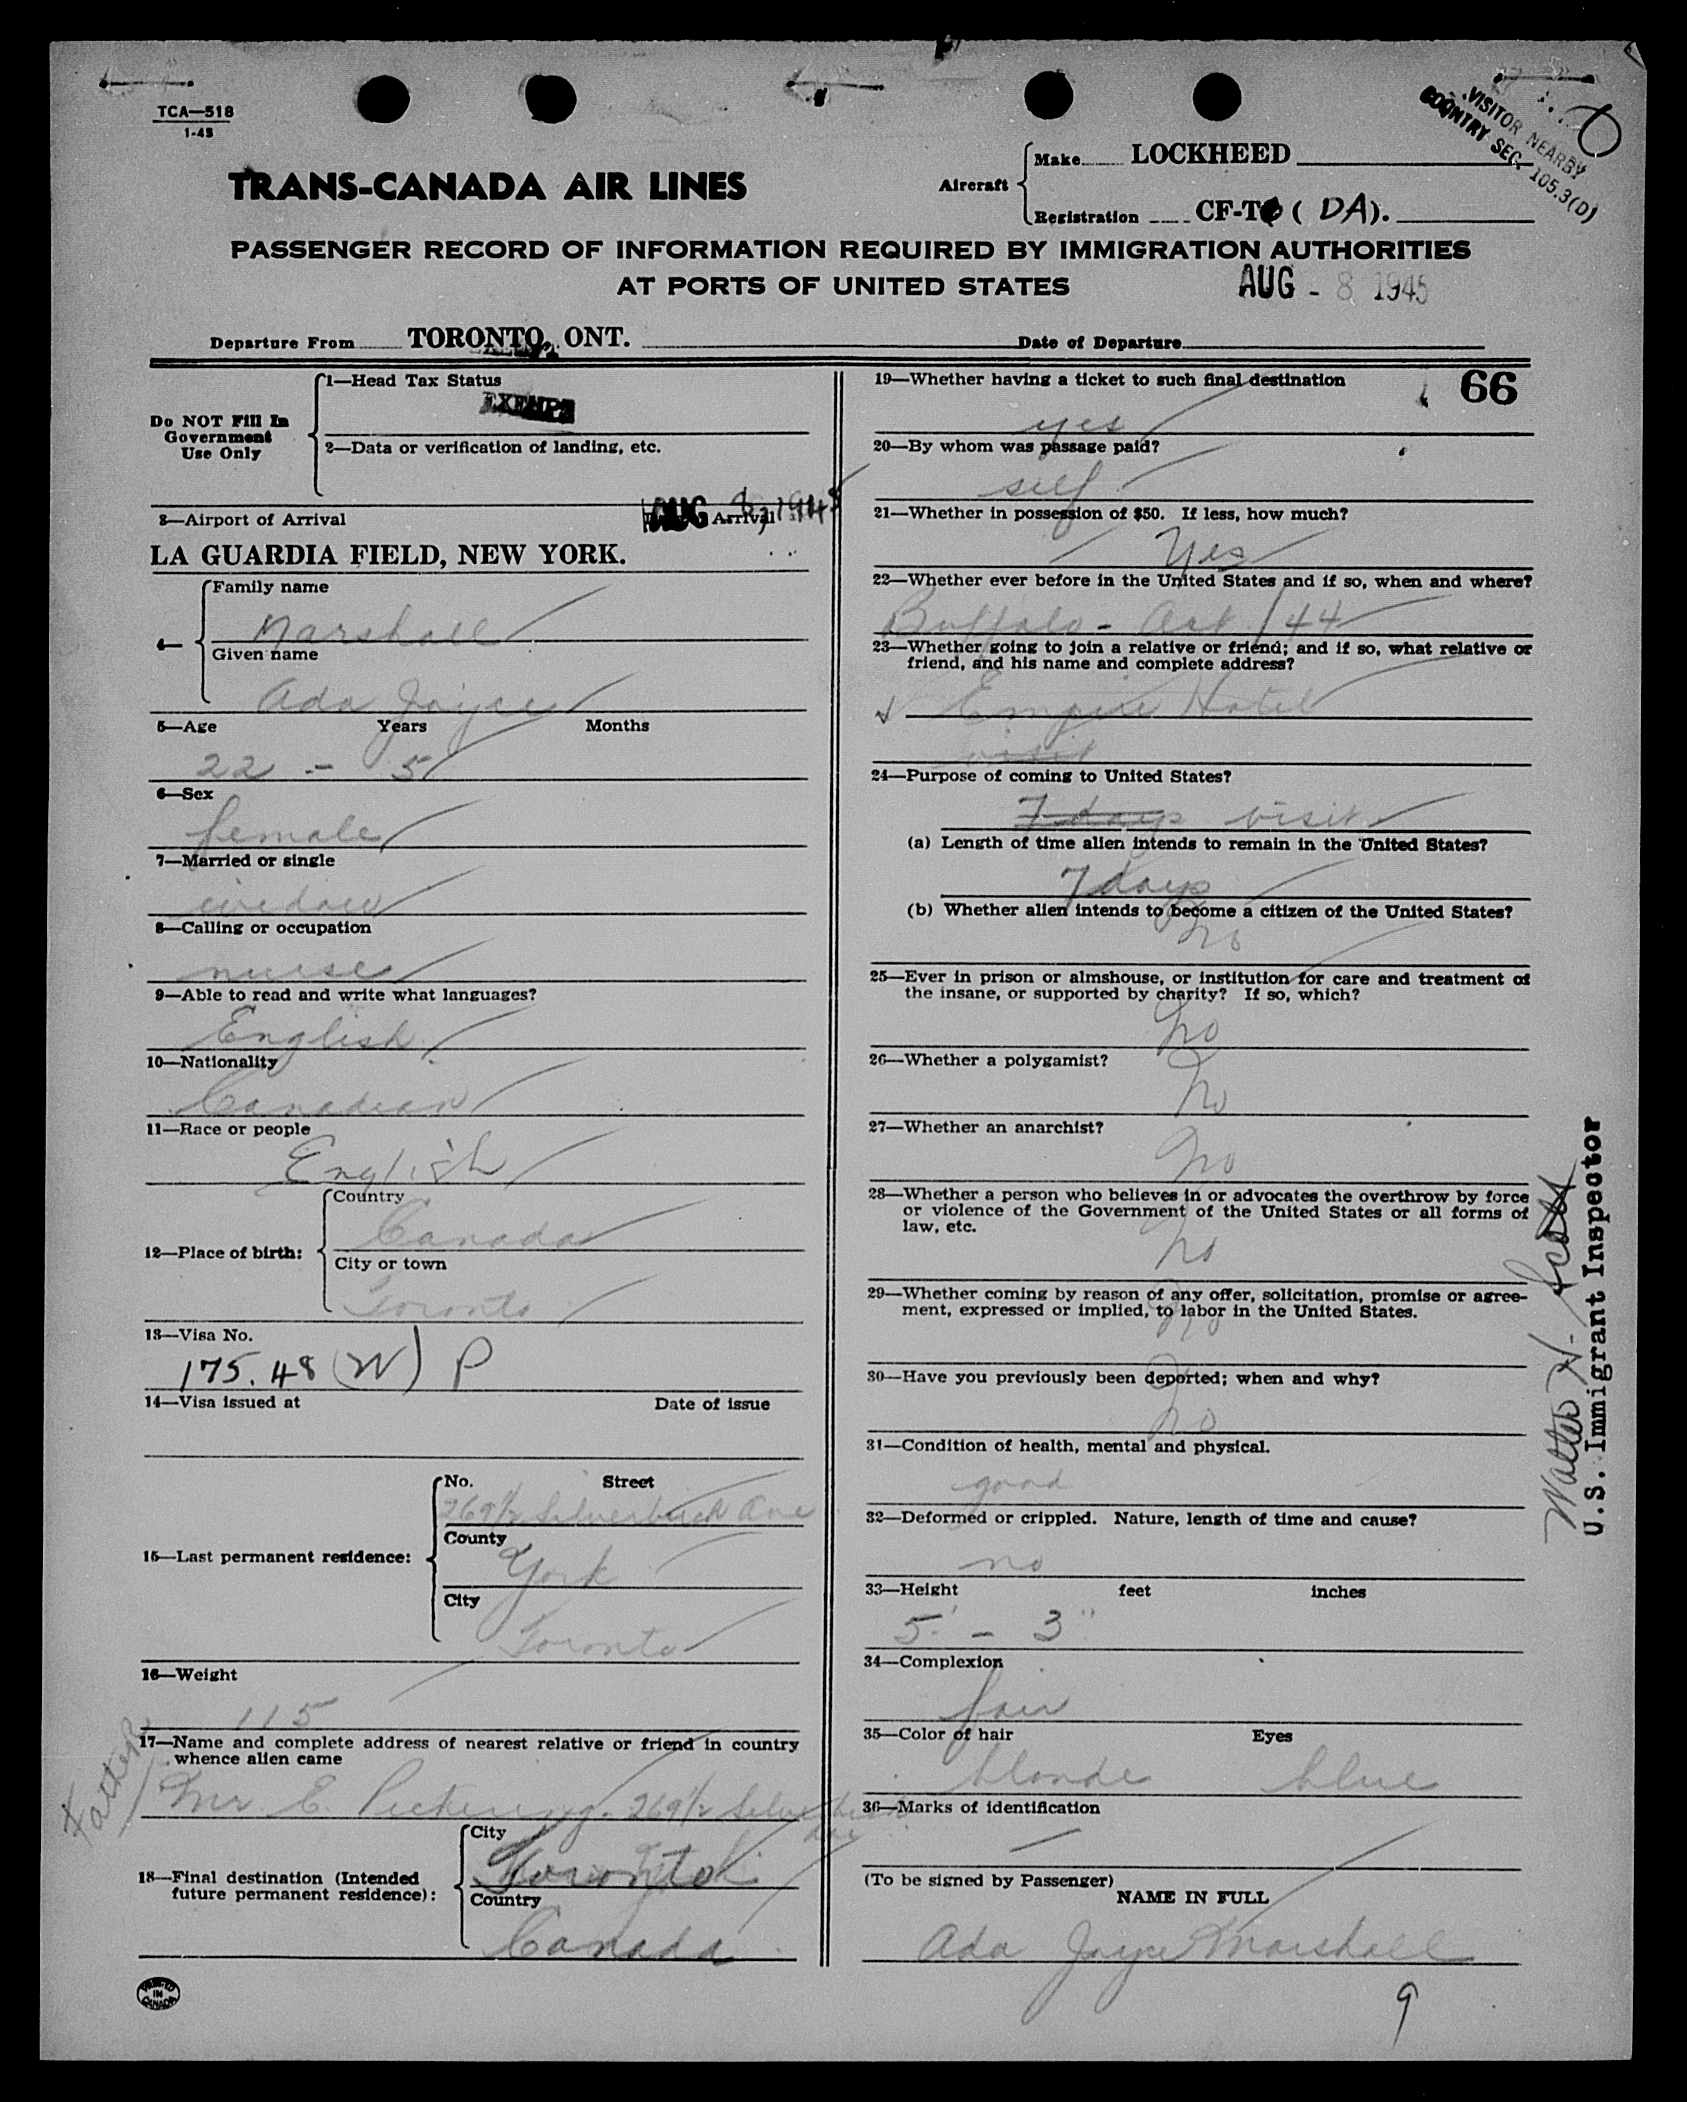 TCA—518
1-45
VISITOR NEARBY
COUNTRY SEC. 105.3(D)
TRANS-CANADA AIR LINES
Aircraft
Make LOCKHEED
Registration CF-TC ( DA ).
PASSENGER RECORD OF INFORMATION REQUIRED BY IMMIGRATION AUTHORITIES
AT PORTS OF UNITED STATES
AUG - 8 1945
Departure From TORONTO, ONT. Date of Departure
Do NOT Fill In
Government
Use Only
1—Head Tax Status
EXEMPT
2—Data or verification of landing, etc.
3—Airport of Arrival Arrival
AUG 8, 1945
LA GUARDIA FIELD, NEW YORK.
4—
Family name
Marshall
Given name
Ada Joyce
5—Age Years Months
22 - 5
6—Sex
female
7—Married or single
widow
8—Calling or occupation
nurse
9—Able to read and write what languages?
English
10—Nationality
Canadian
11—Race or people
English
12—Place of birth:
Country
Canada
City or town
Toronto
13—Visa No.
175.48 (W) P
14—Visa issued at Date of issue
15—Last permanent residence:
No. Street
269½ Silverbirch Ave
County
York
City
Toronto
16—Weight
115
17—Name and complete address of nearest relative or friend in country
whence alien came
Father
Mr E. Pickering. 269½ Silverbirch
Ave
18—Final destination (Intended
future permanent residence):
City
Toronto
Country
Canada
PRINTED
IN
CANADA
66
19—Whether having a ticket to such final destination
yes
20—By whom was passage paid?
self
21—Whether in possession of $50. If less, how much?
Yes
22—Whether ever before in the United States and if so, when and where?
Buffalo - Oct /44
23—Whether going to join a relative or friend; and if so, what relative or
friend, and his name and complete address?
Empire Hotel
visit
24—Purpose of coming to United States?
7 days visit
(a) Length of time alien intends to remain in the United States?
7 days
(b) Whether alien intends to become a citizen of the United States?
no
25—Ever in prison or almshouse, or institution for care and treatment of
the insane, or supported by charity? If so, which?
no
26—Whether a polygamist?
No
27—Whether an anarchist?
No
28—Whether a person who believes in or advocates the overthrow by force
or violence of the Government of the United States or all forms of
law, etc.
No
29—Whether coming by reason of any offer, solicitation, promise or agree-
ment, expressed or implied, to labor in the United States.
No
30—Have you previously been deported; when and why?
No
31—Condition of health, mental and physical.
good
32—Deformed or crippled. Nature, length of time and cause?
no
33—Height feet inches
5' - 3"
34—Complexion
fair
35—Color of hair Eyes
blonde blue
36—Marks of identification
—
(To be signed by Passenger)
NAME IN FULL
Ada Joyce Marshall
9
Walter H. Scott
U.S. Immigrant Inspector